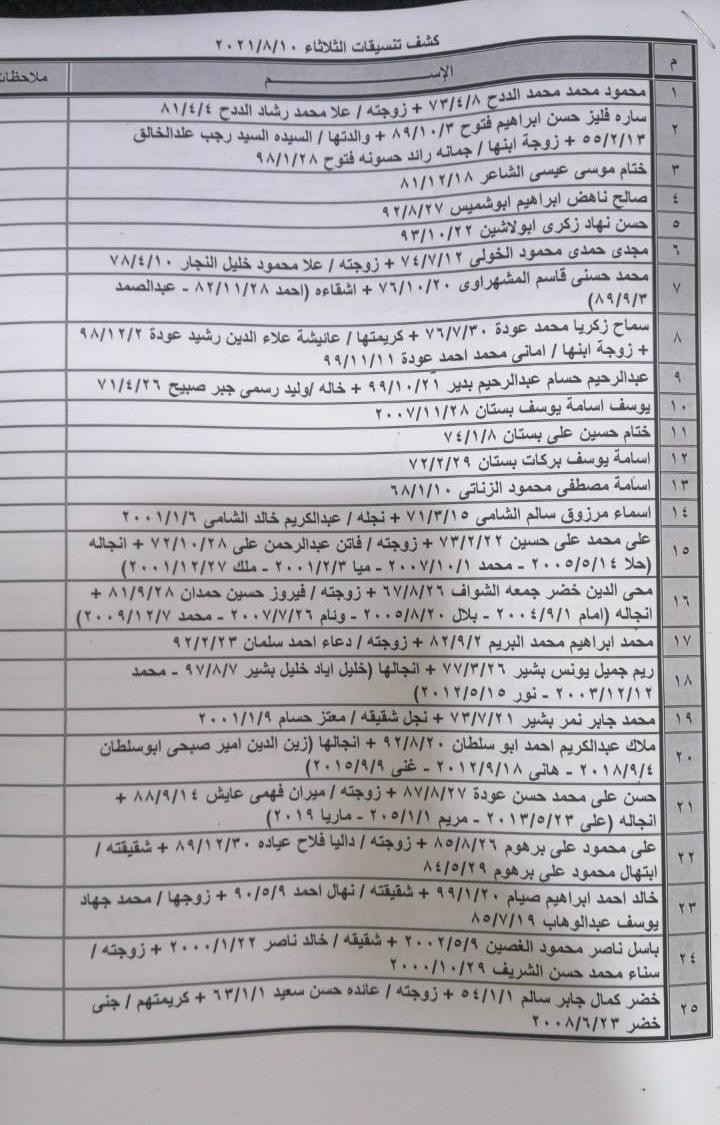 كشف تنسيقات الثلاثاء ٢٠٢١/٨/١٠
م الإســـم ملاحظات
١ محمود محمد محمد الددح ٧٣/٤/٨ + زوجته / علا محمد رشاد الددح ٨١/٤/٤
٢ ساره فليز حسن ابراهيم فتوح ٨٩/١٠/٣ + والدتها / السيده السيد رجب علدالخالق
٥٥/٢/١٣ + زوجة ابنها / جمانه رائد حسونه فتوح ٩٨/١/٢٨
٣ ختام موسى عيسى الشاعر ٨١/١٢/١٨
٤ صالح ناهض ابراهيم ابوشميس ٩٢/٨/٢٧
٥ حسن نهاد زكرى ابولاشين ٩٣/١٠/٢٢
٦ مجدى حمدى محمود الخولى ٧٤/٧/١٢ + زوجته / علا محمود خليل النجار ٧٨/٤/١٠
٧ محمد حسنى قاسم المشهراوى ٧٦/١٠/٢٠ + اشقاءه (احمد ٨٢/١١/٢٨ - عبدالصمد
٨٩/٩/٣)
٨ سماح زكريا محمد عودة ٧٦/٧/٣٠ + كريمتها / عانيشة علاء الدين رشيد عودة ٩٨/١٢/٢
+ زوجة ابنها / امانى محمد احمد عودة ٩٩/١١/١١
٩ عبدالرحيم حسام عبدالرحيم بدير ٩٩/١٠/٢١ + خاله /وليد رسمى جبر صبيح ٧١/٤/٢٦
١٠ يوسف اسامة يوسف بستان ٢٠٠٧/١١/٢٨
١١ ختام حسين على بستان ٧٤/١/٨
١٢ اسامة يوسف بركات بستان ٧٢/٢/٢٩
١٣ اسامة مصطفى محمود الزناتى ٦٨/١/١٠
١٤ اسماء مرزوق سالم الشامى ٧١/٣/١٥ + نجله / عبدالكريم خالد الشامى ٢٠٠١/١/٦
١٥ على محمد على حسين ٧٣/٢/٢٢ + زوجته / فاتن عبدالرحمن على ٧٢/١٠/٢٨ + انجاله
(حلا ٢٠٠٥/٥/١٤ - محمد ٢٠٠٧/١٠/١ - ميا ٢٠٠١/٢/٣ - ملك ٢٠٠١/١٢/٢٧)
١٦ محى الدين خضر جمعه الشواف ٦٧/٨/٢٦ + زوجته / فيروز حسين حمدان ٨١/٩/٢٨ +
انجاله (امام ٢٠٠٤/٩/١ - بلال ٢٠٠٥/٨/٢٠ - ونام ٢٠٠٧/٧/٢٦ - محمد ٢٠٠٩/١٢/٧)
١٧ محمد ابراهيم محمد البريم ٨٢/٩/٢ + زوجته / دعاء احمد سلمان ٩٢/٢/٢٣
١٨ ريم جميل يونس بشير ٧٧/٣/٢٦ + انجالها (خليل اياد خليل بشير ٩٧/٨/٧ - محمد
٢٠٠٣/١٢/١٢ - نور ٢٠١٢/٥/١٥)
١٩ محمد جابر نمر بشير ٧٣/٧/٢١ + نجل شقيقه / معتز حسام ٢٠٠١/١/٩
٢٠ ملاك عبدالكريم احمد ابو سلطان ٩٢/٨/٢٠ + انجالها (زين الدين امير صبحى ابوسلطان
٢٠١٨/٩/٤ - هانى ٢٠١٢/٩/١٨ - غنى ٢٠١٥/٩/٩)
٢١ حسن على محمد حسن عودة ٨٧/٨/٢٧ + زوجته / ميران فهمى عايش ٨٨/٩/١٤ +
انجاله (على ٢٠١٣/٥/٢٣ - مريم ٢٠٥/١/١ - ماريا ٢٠١٩)
٢٢ على محمود على برهوم ٨٥/٨/٢٦ + زوجته / داليا فلاح عياده ٨٩/١٢/٣٠ + شقيقته /
ابتهال محمود على برهوم ٨٤/٥/٢٩
٢٣ خالد احمد ابراهيم صيام ٩٩/١/٢٠ + شقيقته / نهال احمد ٩٠/٥/٩ + زوجها / محمد جهاد
يوسف عبدالوهاب ٨٥/٧/١٩
٢٤ باسل ناصر محمود الغصين ٢٠٠٢/٥/٩ + شقيقه / خالد ناصر ٢٠٠٠/١/٢٢ + زوجته /
سناء محمد حسن الشريف ٢٠٠٠/١٠/٢٩
٢٥ خضر كمال جابر سالم ٥٤/١/١ + زوجته / عانده حسن سعيد ٦٣/١/١ + كريمتهم / جنى
خضر ٢٠٠٨/٦/٢٣